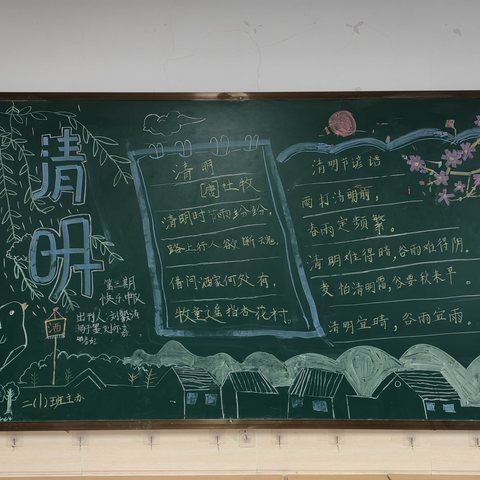 清明
第三期
快乐中队
出刊人：刘
酒
二（1）班主办
清 明
[唐]杜牧
清明时节雨纷纷，
路上行人欲断魂。
借问酒家何处有，
牧童遥指杏花村。
清明节谚语
雨打清明前，
春雨定频繁。
清明难得晴，谷雨难得阴。
麦怕清明霜，谷要秋来旱。
清明宜晴，谷雨宜雨。